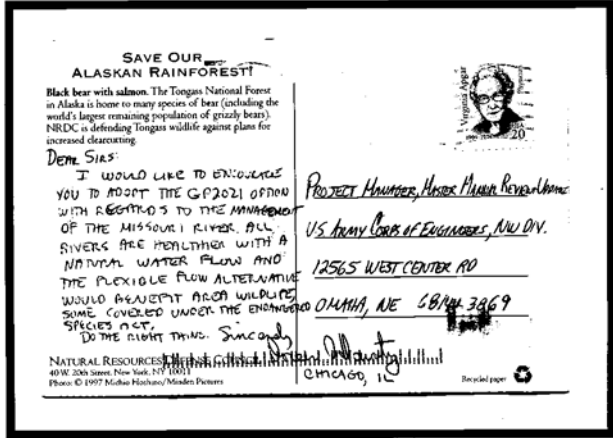 SAVE OUR
ALASKAN RAINFOREST!
Black bear with salmon. The Tongass National Forest
in Alaska is home to many species of bear (including the
world's largest remaining population of grizzly bears).
NRDC is defending Tongass wildlife against plans for
increased clearcutting.
DEAR SIRS:
I WOULD LIKE TO ENCOURAGE
YOU TO ADOPT THE GP2021 OPTION
WITH REGARDS TO THE MANAGEMENT
OF THE MISSOURI RIVER. ALL
RIVERS ARE HEALTHIER WITH A
NATURAL WATER FLOW AND
THE FLEXIBLE FLOW ALTERNATIVE
WOULD BENEFIT AREA WILDLIFE,
SOME COVERED UNDER THE ENDANGERED
SPECIES ACT.
DO THE RIGHT THING. Sincerely
NATURAL RESOURCES DEFENSE COUNCIL
40 W. 20th Street, New York, NY 10011
Photo: © 1997 Michio Hoshino/Minden Pictures
CHICAGO, IL
Virginia Apgar
Physician
USA
20
PROJECT MANAGER, MASTER MANUAL REVIEW UPDATE
US ARMY CORPS OF ENGINEERS, NW DIV.
12565 WEST CENTER RD
OMAHA, NE 68144 3869
Recycled paper